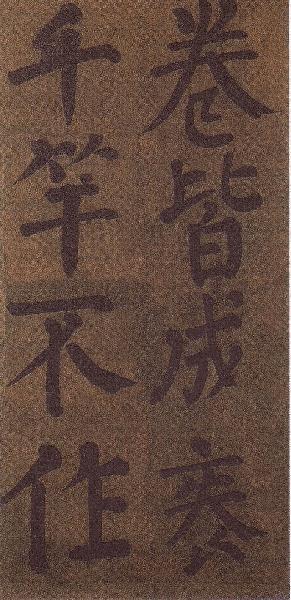 卷皆成袠
千竿不作